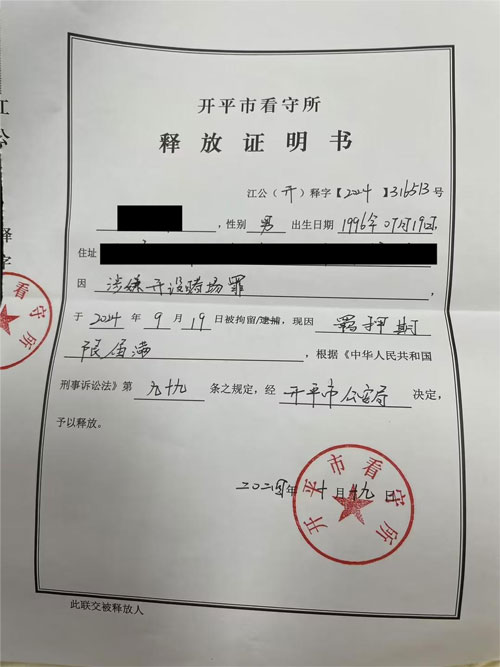 开平市看守所
释放证明书
江公（开）释字【2024】316513号
，性别 男 出生日期 1996年07月19日，
住址
因 涉嫌开设赌场罪，
于 2024 年 9 月 19 日被拘留/逮捕，现因 羁押期
限届满，根据《中华人民共和国
刑事诉讼法》第 九十九 条之规定，经 开平市公安局 决定，
予以释放。
二〇二四年 十月十九日
开平市看守所
此联交被释放人
江公
释字
看守所